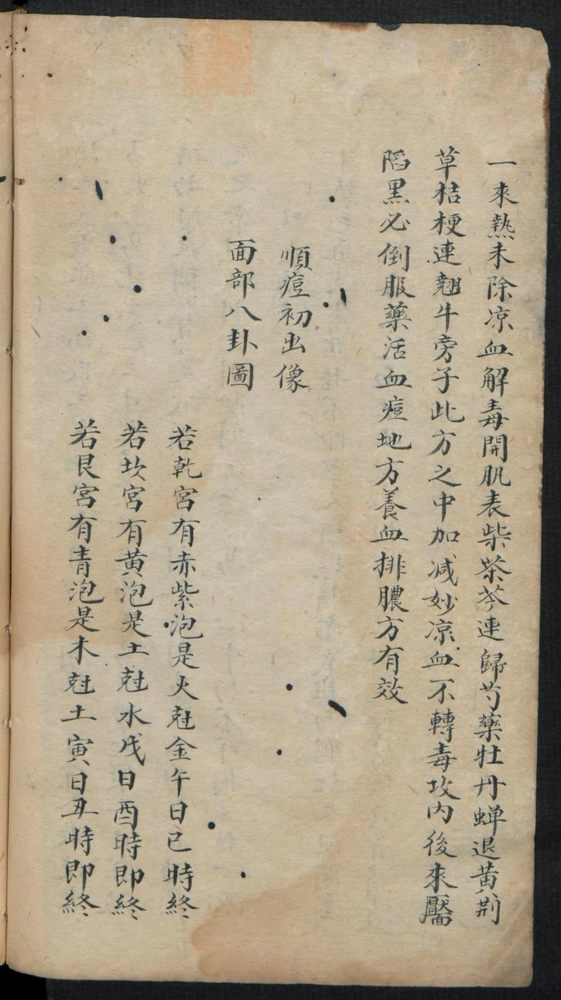 一來熱未除凉血解毒開肌表柴茶芩連歸芍藥牡丹蟬退黃荊
草桔梗連翹牛旁子此方之中加减妙凉血不轉毒攻內後來靨
陷黑必倒服藥活血痘地方養血排膿方有效
順痘初出像
面部八卦圖
若乾宮有赤紫泡是火尅金午日巳時終
若坎宮有黃泡是土尅水戊日酉時即終
若艮宮有青泡是木尅土寅日丑時即終